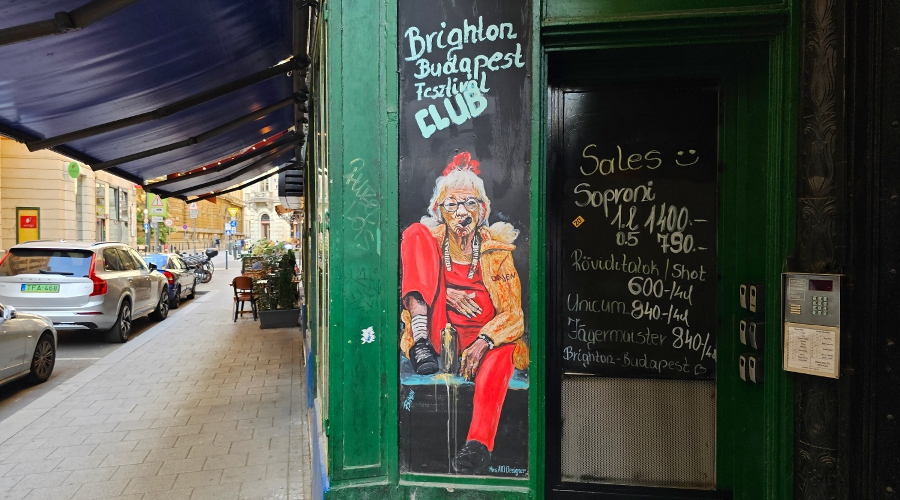 Brighton
Budapest
Fesztivál
CLUB
Sales
Soproni
1.l 1400.-
0.5 790.-
Röviditalok / Shot
600/4cl
Unicum 840/4cl
Jägermaister 840/4cl
Brighton-Budapest